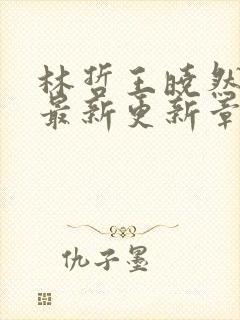 林哲王晓然
最新更新章
仇子墨